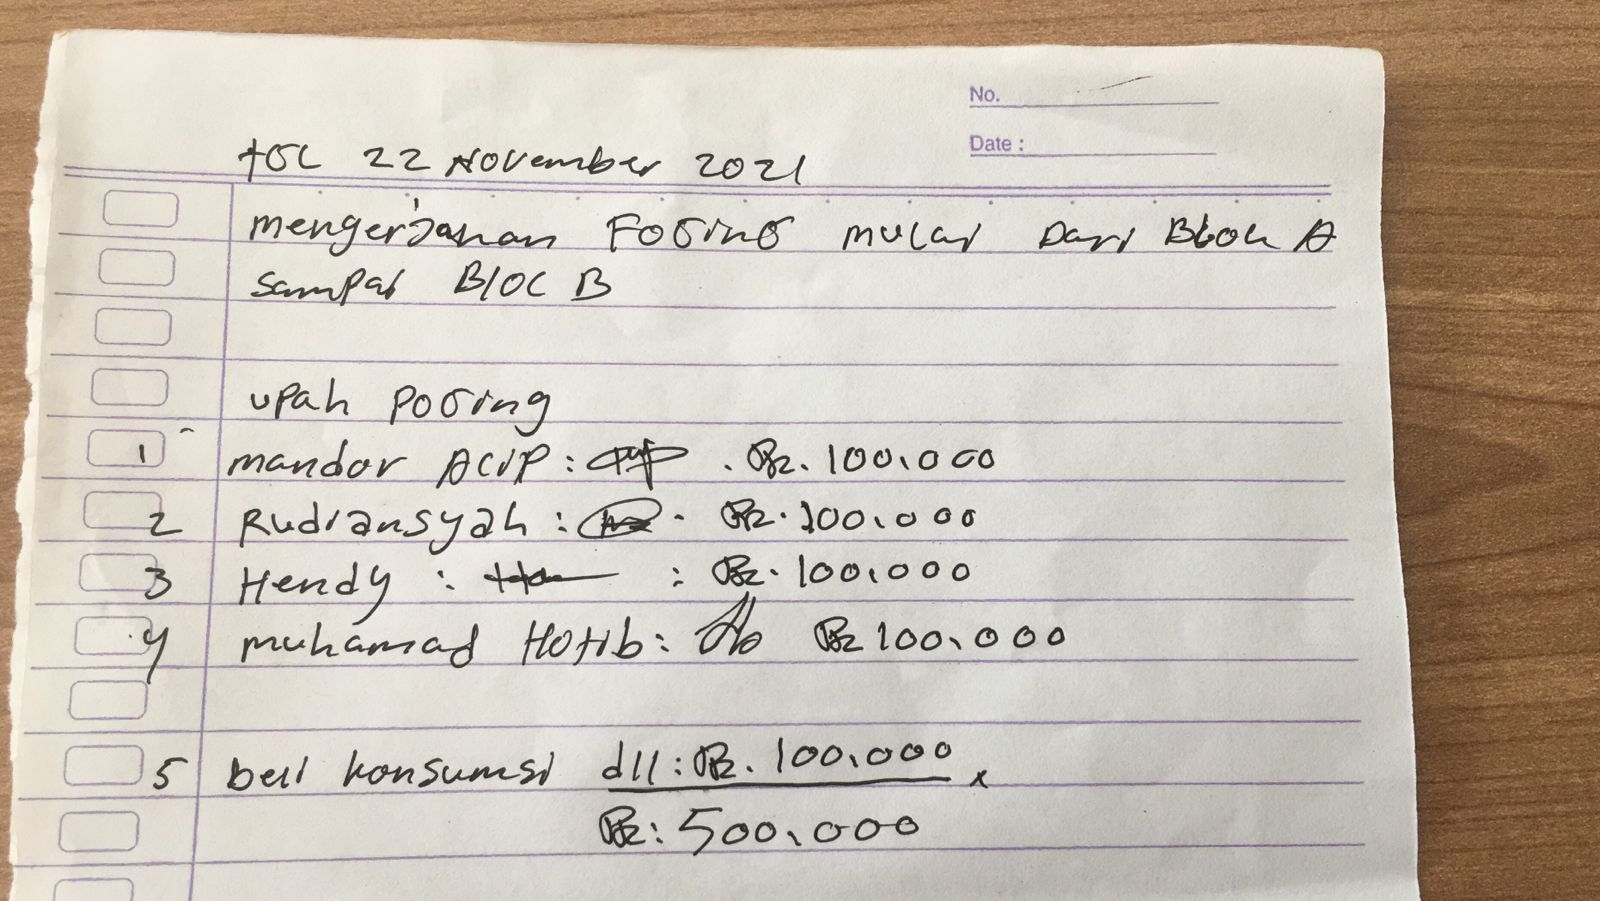 No.
Date :
tGL 22 November 2021
mengerjakan FoGinG mulai Dari Blok A
sampai Bloc B
upah PoGing
1 mandor ACIP : . Rp. 100.000
2 Rudiansyah : . Rp. 100.000
3 Hendy : : Rp. 100.000
4 muhamad Hotib : Rp 100.000
5 beli konsumsi dll : Rp. 100.000
Rp : 500.000